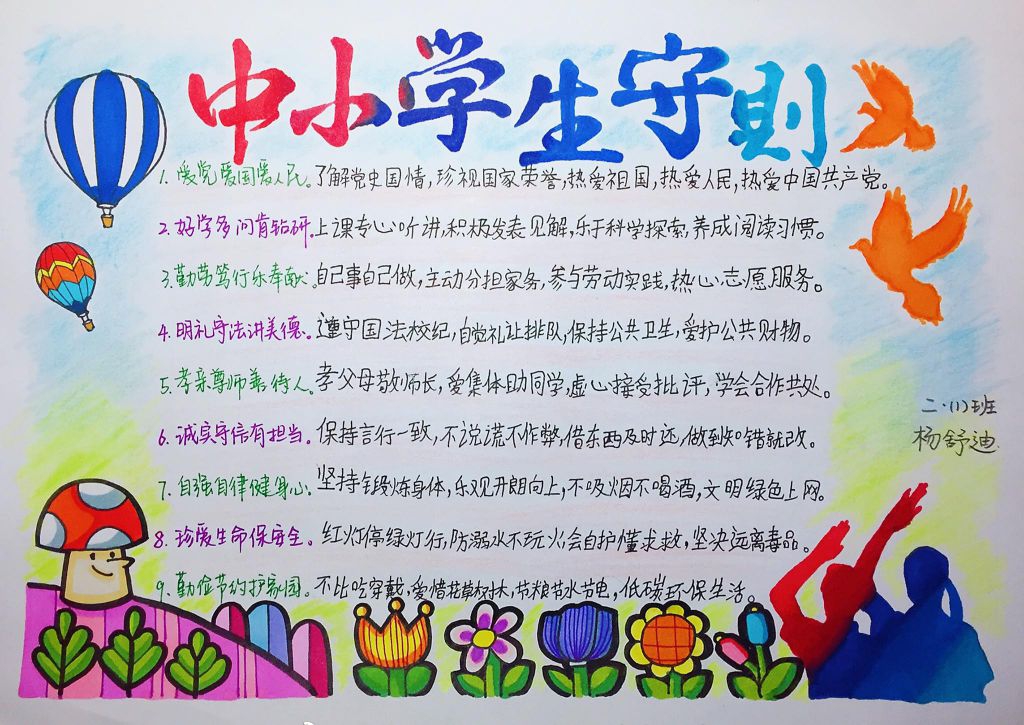 中小学生守则
1. 爱党爱国爱人民。了解党史国情,珍视国家荣誉,热爱祖国,热爱人民,热爱中国共产党。
2. 好学多问肯钻研.上课专心听讲,积极发表见解,乐于科学探索,养成阅读习惯。
3. 勤劳笃行乐奉献。自己事自己做,主动分担家务,参与劳动实践,热心志愿服务。
4. 明礼守法讲美德。遵守国法校纪,自觉礼让排队,保持公共卫生,爱护公共财物。
5. 孝亲尊师善待人。孝父母敬师长,爱集体助同学,虚心接受批评,学会合作共处。
6. 诚实守信有担当。保持言行一致,不说谎不作弊,借东西及时还,做到知错就改。
7. 自强自律健身心。坚持锻炼身体,乐观开朗向上,不吸烟不喝酒,文明绿色上网。
8. 珍爱生命保安全。红灯停绿灯行,防溺水不玩火,会自护懂求救,坚决远离毒品。
9. 勤俭节约护家园。不比吃穿戴,爱惜花草树木,节粮节水节电,低碳环保生活。
二·(1)班
杨舒迪